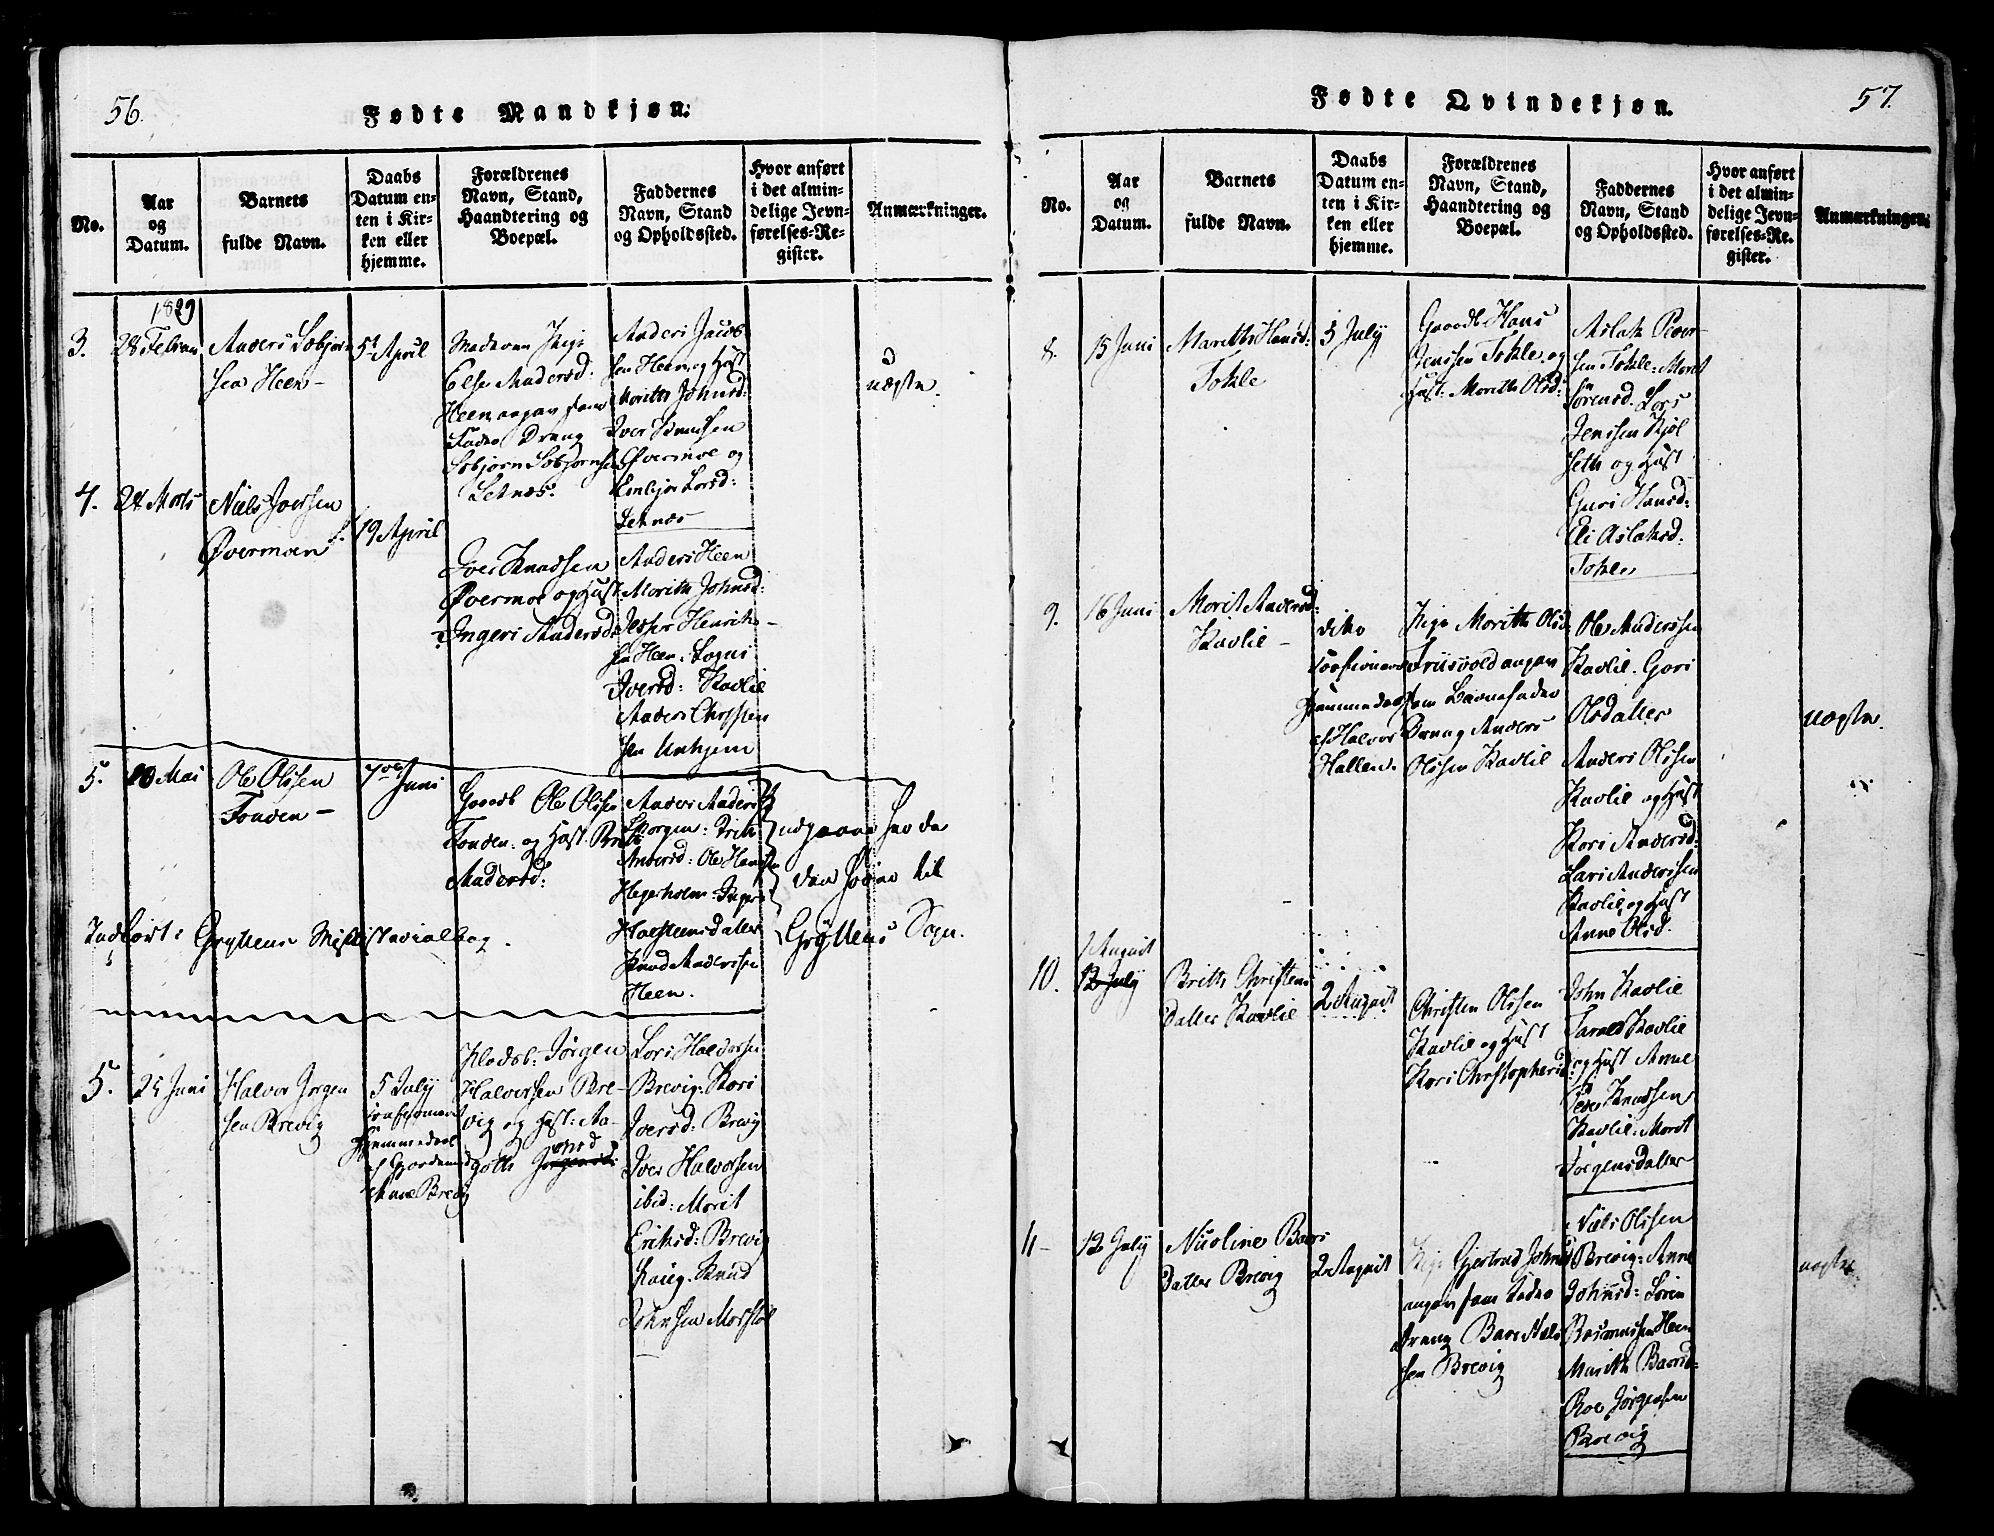 56.
Fødte Mandkjøn.
No.
Aar
og
Datum.
Barnets
fulde Navn.
Daabs
Datum en-
ten i Kir-
ken eller
hjemme.
Forældrenes
Navn, Stand,
Haandtering og
Boepæl.
Faddernes
Navn, Stand
og Opholdssted.
Hvor anført
i det almin-
delige Jevn-
førelses-Re-
gister.
Anmærkninger.
1829
3.
28 Februar
Anders
sen Heen
5t April
Pige
Else Andersd:
Heen angav som
Fader Dreng
Letnæs.
Anders Jacob-
sen Heen og Hust
Marithe Johnsd:
Iver Knudsen
Øvermoe og
Larsd:
Letnæs
uægte.
4.
24 Marts
Niels Iversen
Øvermoen
19 April
Iver Knudsen
Øvermoe og Hust
Ingeri Andersd:
Anders Heen
Marith Johnsd:
Jesper Henrik-
sen Heen
Iversd: Kavlie
Anders
sen Unhjem
5.
10 Mai
Ole Olsen
Tonden
7de Juni
Gaardb Ole Olsen
Tonden og Hust. Brith
Andersd:
Anders Anders
Skorgen: Brith
Andersd: Ole Hansen
Hegerholm
Halsteensdatter
Knud Anderssen
Heen.
udgaaer
til
Gryttens Sogn.
Indført i Gryttens Ministerialbog.
5.
25 Juni
Halvor Jørgen
sen Brevig
5 July
confirmeret
Hjemmedaab
af Gjordemod
Anne Brevig
Pladsb: Jørgen
Halvorsen Bre-
vig og Hust: Aa-
goth
Lars Halvorsen
Brevig: Kari
Iversd: Brevig
Iver Halvorsen
ibid: Marit
Eriksd: Brevig
Knud
Johnsen Morstøl
57.
Fødte Qvindekjøn.
No.
Aar
og
Datum.
Barnets
fulde Navn.
Daabs
Datum en-
ten i Kir-
ken eller
hjemme.
Forældrenes
Navn, Stand,
Haandtering og
Boepæl.
Faddernes
Navn, Stand
og Opholdssted.
Hvor anført
i det almin-
delige Jevn-
førelses-Re-
gister.
Anmærkninger.
8.
15 Juni
Marethe Hansd:
Tokle
5 July
Gaardb Hans
Jenssen Tokle og
Hust: Marithe Olsd:
Aslak Peder-
sen Tokle: Marit
Sørensd. Lars
Jenssen Kjøl
seth og Hust
Guri Hansd:
Eli Aslaksd:
Tokle
9.
16 Juni
Marit Andersd:
Kavlie
dito
confirmeret
Hjemmedaab
af Halvor
Hallen.
Pige Marithe Olsd
Friisvold angav
som Barnefader
Dreng Anders
Olssen Kavlie
Ole Anderssen
Kavlie. Guri
Olsdatter
Anders Olssen
Kavlie og Hust
Kari Andersd:
Lars Anderssen
Kavlie og Hust
Anne Olsd.
uægte.
10.
1 August
12 July
Brithe Christens
datter Kavlie
2 August
Christen Olssen
Kavlie og Hust
Kari Christophersd:
John Kavlie
Kavlie
og Hust Anne
Peder Knudsen
Kavlie: Marit
Jørgensdatter
11
12 July
Nicoline Baars
datter Brevig
2 August
Pige Gjertrud Johnsd
angav som Fader
Dreng Baar Niels
sen Brevig
Niels Olssen
Brevig: Anne
Johnsd: Søren
Rasmussen Heen
Marith Baarsd:
Roe Jørgensen
Brevig
uægte